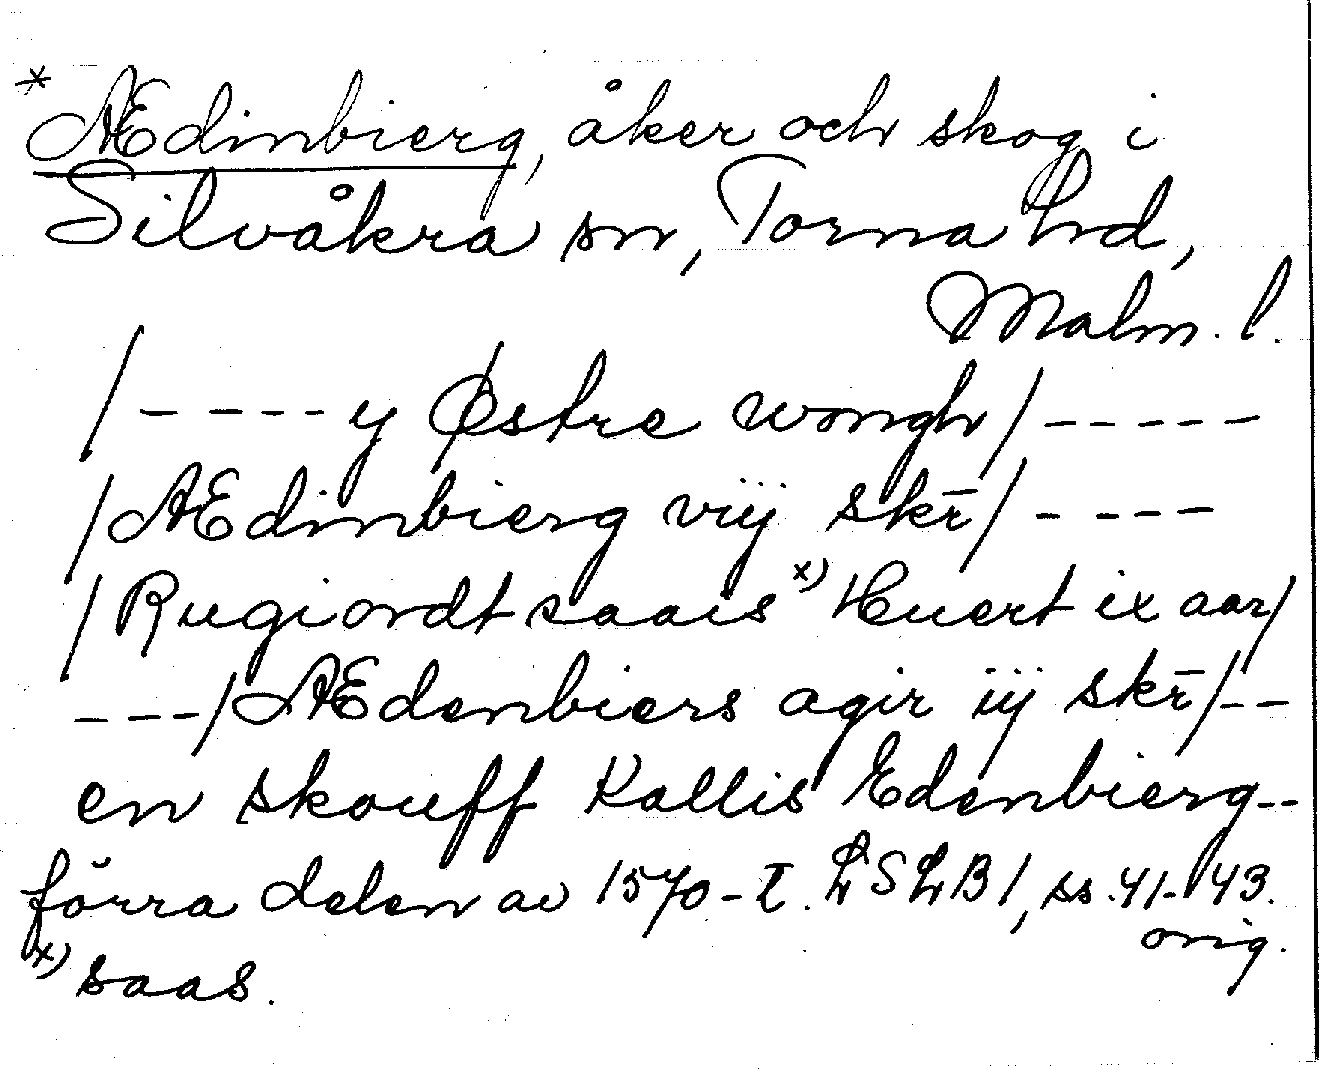 * Ædinbierg, åker och skog i
Silvåkra sn, Torna hd,
Malm. l.
/---- y Østre wongh/-----
/Ædinbierg viij skr̄/----
/Rugiordt saais x) Huert ix aar/
---/Ædenbiers agir iij skr̄/--
en skouff Kallis Edenbierg--
förra delen av 1570-t. LSLB1, ss. 41-43.
orig.
x) saas.